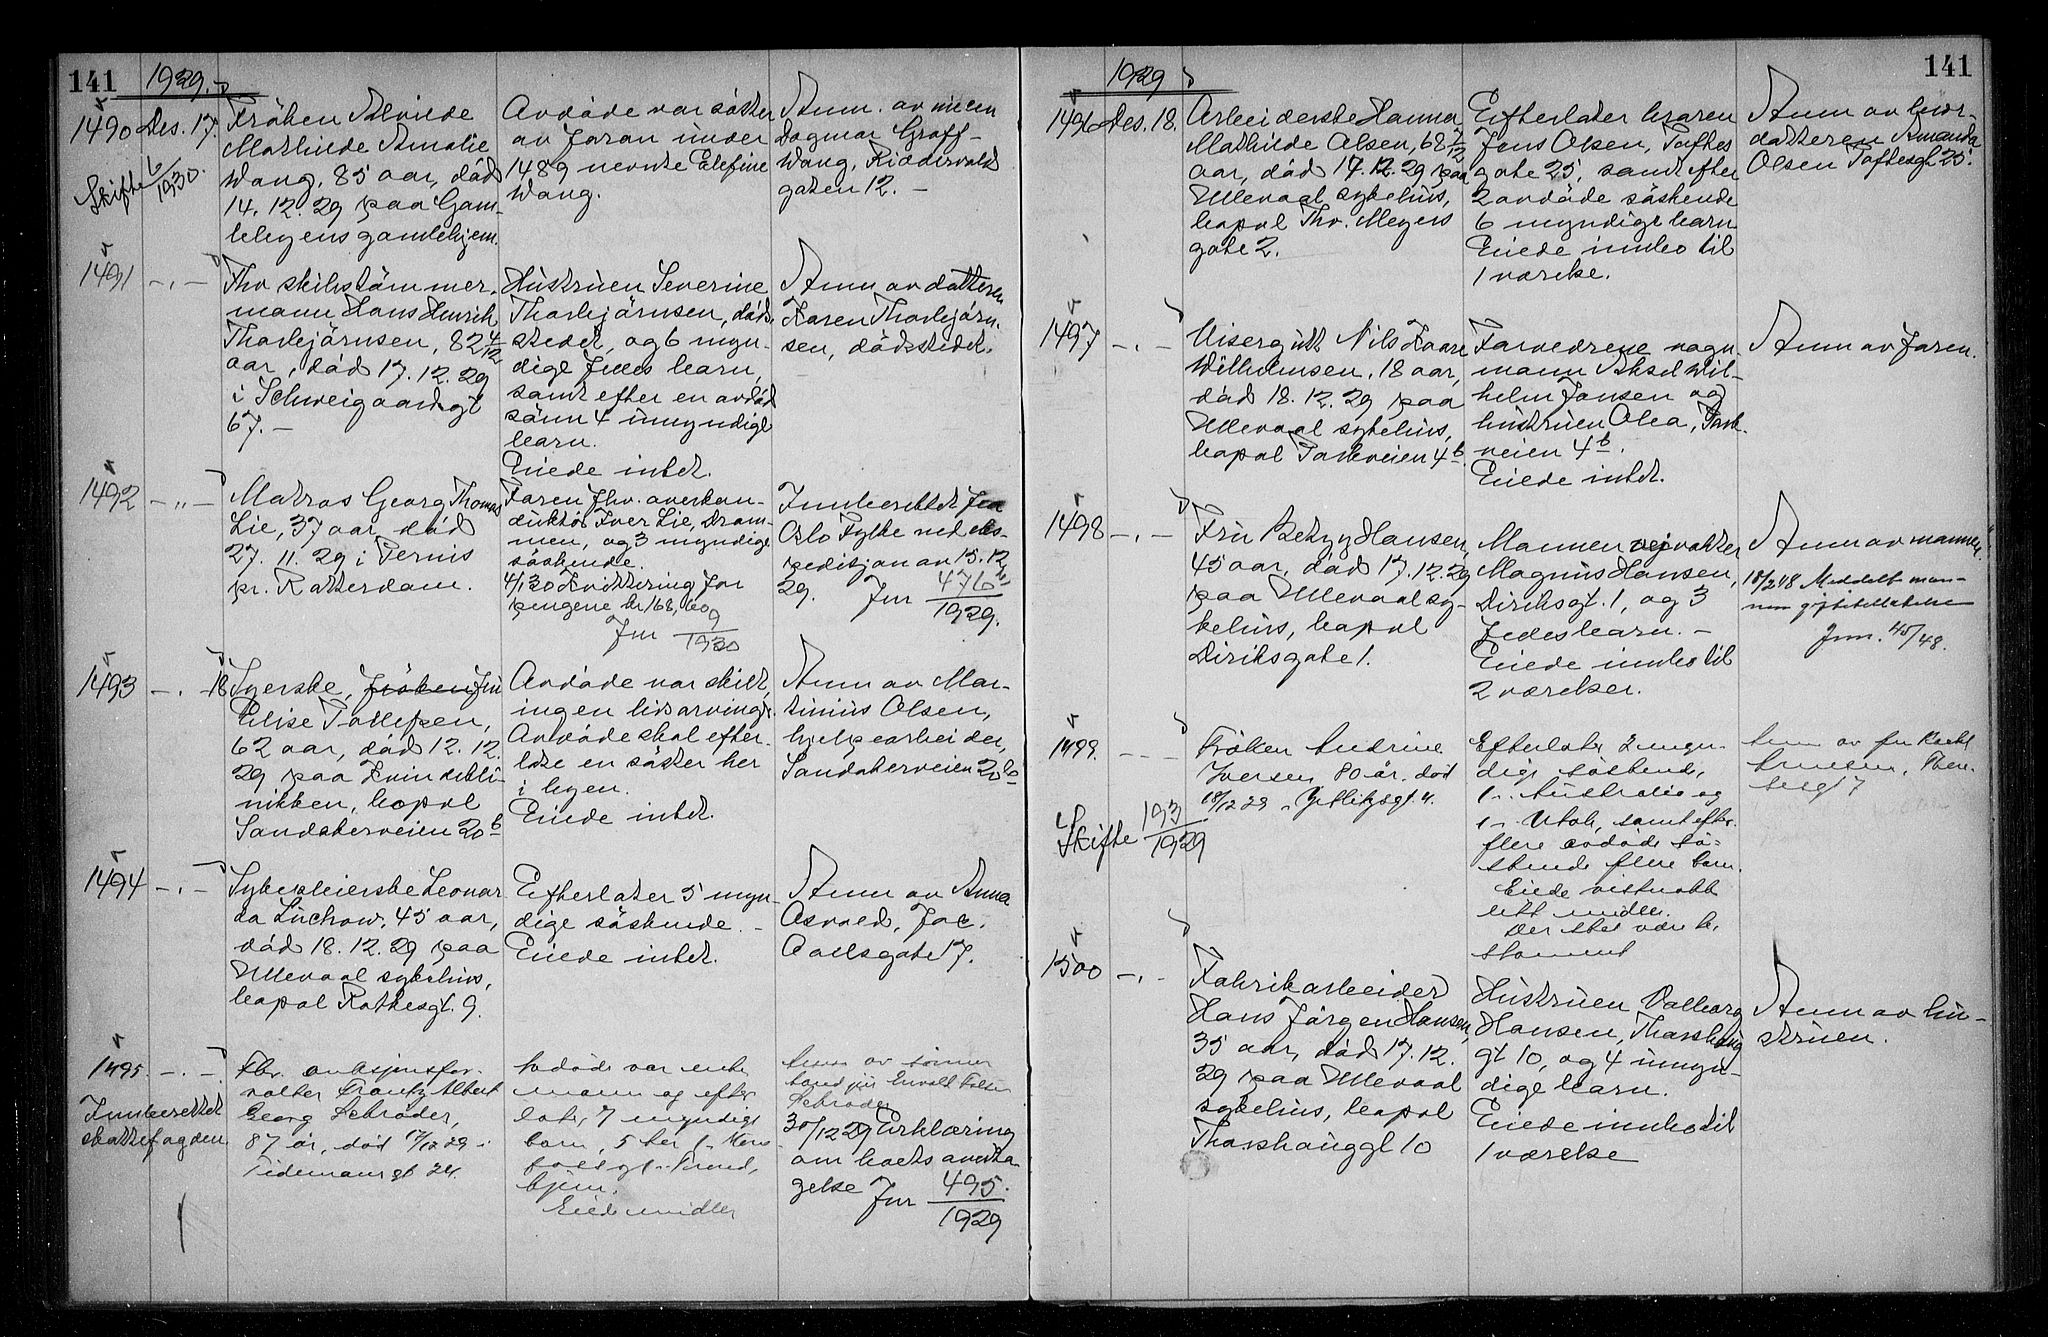 141
1929.
1490 Des. 17.
Skifte 6/1930.
Fröken Alvilde
Mathilde Amalie
Wang, 85 aar, död
14. 12. 29 paa Gam-
lebyens gamlehjem.
Avdöde var söster
av foran under
1489 nevnte Elefine
Wang.
Anm. av niecen
Dagmar Graff-
Wang, Riddervolds
gaten 12. –
1491 – . –
Fhv skibstömmer-
mann Hans Henrik
Thorbjörnsen, 82 4/12
aar, död 17. 12. 29
i Schweigaardsgt
67. –
Hustruen Severine
Thorbjörnsen, död-
stedet, og 6 myn-
dige fælles barn,
samt efter en avdöd
sönn 4 umyndige
barn.
Eiede intet.
Anm av datteren
Karen Thorbjörn-
sen, dödsstedet.
1492 – „ –
Matros Georg Thomas
Lie, 37 aar, död
27. 11. 29 i Pernis
pr. Rotterdam.
Faren fhv. overkon-
duktör Iver Lie, Dram-
men, og 3 myndige
söskende.
4/1 30 Kvittering for
pengene kr 168,60
Jnr 9/1930
Innberettet fra
Oslo Fylke ved eks-
pedisjon av 15. 12.
29. Jnr 476/1929.
1493 – . – 18
Syerske, fröken fru
Elise Tollefsen,
62 aar, död 12. 12.
29 paa Kvindekli-
nikken, bopæl
Sandakerveien 20 b
Avdöde var skilt,
ingen livsarvinger.
Avdöde skal efter-
late en söster her
i byen.
Eiede intet.
Anm av Mar-
tinius Olsen,
hjelpearbeider,
Sandakerveien 20 b
1494 – . –
Sykepleierske Leonar
da Lüchow, 45 aar,
död 18. 12. 29 paa
Ullevaal sykehus,
bopæl Rathkesgt. 9.
Efterlater 5 myn-
dige söskende. –
Eiede intet.
Anm av Anna
Osvold, Jac.
Aallsgate 17.
1495. – . –
Innberettet
skattefogden
Fhv. auksjonsfor-
valter Frantz Albert
Georg Schröder,
87 år, död 17/12 29 i
Tidemansgt 24.
Avdöde var enke
mann og efter
later 7 myndige
barn, 5 her
hjem.
Eiede midler
Anm av sönnen
Schröder
30/12 29 Erklæring
om boets overta
gelse Jnr 495/1929
141
1929
1496 Des. 18.
Arbeiderske Hanna
Mathilde Olsen, 68 7/12
aar, död 17. 12. 29 paa
Ullevaal sykehus,
bopæl Thv. Meyers
gate 2.
Efterlater broren
Jens Olsen, Toftes
gate 25, samt efter
2 avdöde söskende
6 myndige barn
Eiede innbo til
1 værelse.
Anm av bror-
datteren Amanda
Olsen Toftesgt. 25.
1497 – . –
Visergutt Nils Kaare
Wilhelmsen, 18 aar,
död 18. 12. 29 paa
Ullevaal sykehus,
bopæl Parkveien 4 b.
Forældrene vogn-
mann Aksel Wil-
helm Jansen og
hustruen Olea, Park-
veien 4 b.
Eiede intet.
Anm av faren.
1498 – . –
Fru Betzy Hansen,
45 aar, död 17. 12. 29
paa Ullevaal sy-
kehus, bopæl
Diriksgate 1.
Mannen veivokter
Magnus Hansen,
Diriksgt. 1, og 3
felles barn. –
Eiede innbo til
2 værelser.
Anm av mannen.
18/2 48 Meddelt man-
nen giftetillatelse
Jnr. 45/48.
1499. – –
Skifte 193/1929
Fröken Andrine
Iversen 80 år. död
18/12 29 i
Efterlater 2 myn-
dige söskende,
1 i Australia og
1 i Utah, samt efter
flere avdöde sö-
skende flere barn.
Eiede vistnokk
litt midler.
Der skal være te-
stament
Anm av fru
1500 – . –
Fabrikarbeider
Hans Jörgen Hansen,
35 aar, död 17. 12.
29 paa Ullevaal
sykehus, bopæl
Thorshauggt 10
Hustruen Valborg
Hansen, Thorshaug
gt 10, og 4 umyn-
dige barn.
Eiede innbo til
1 værelse
Anm av hu-
struen.